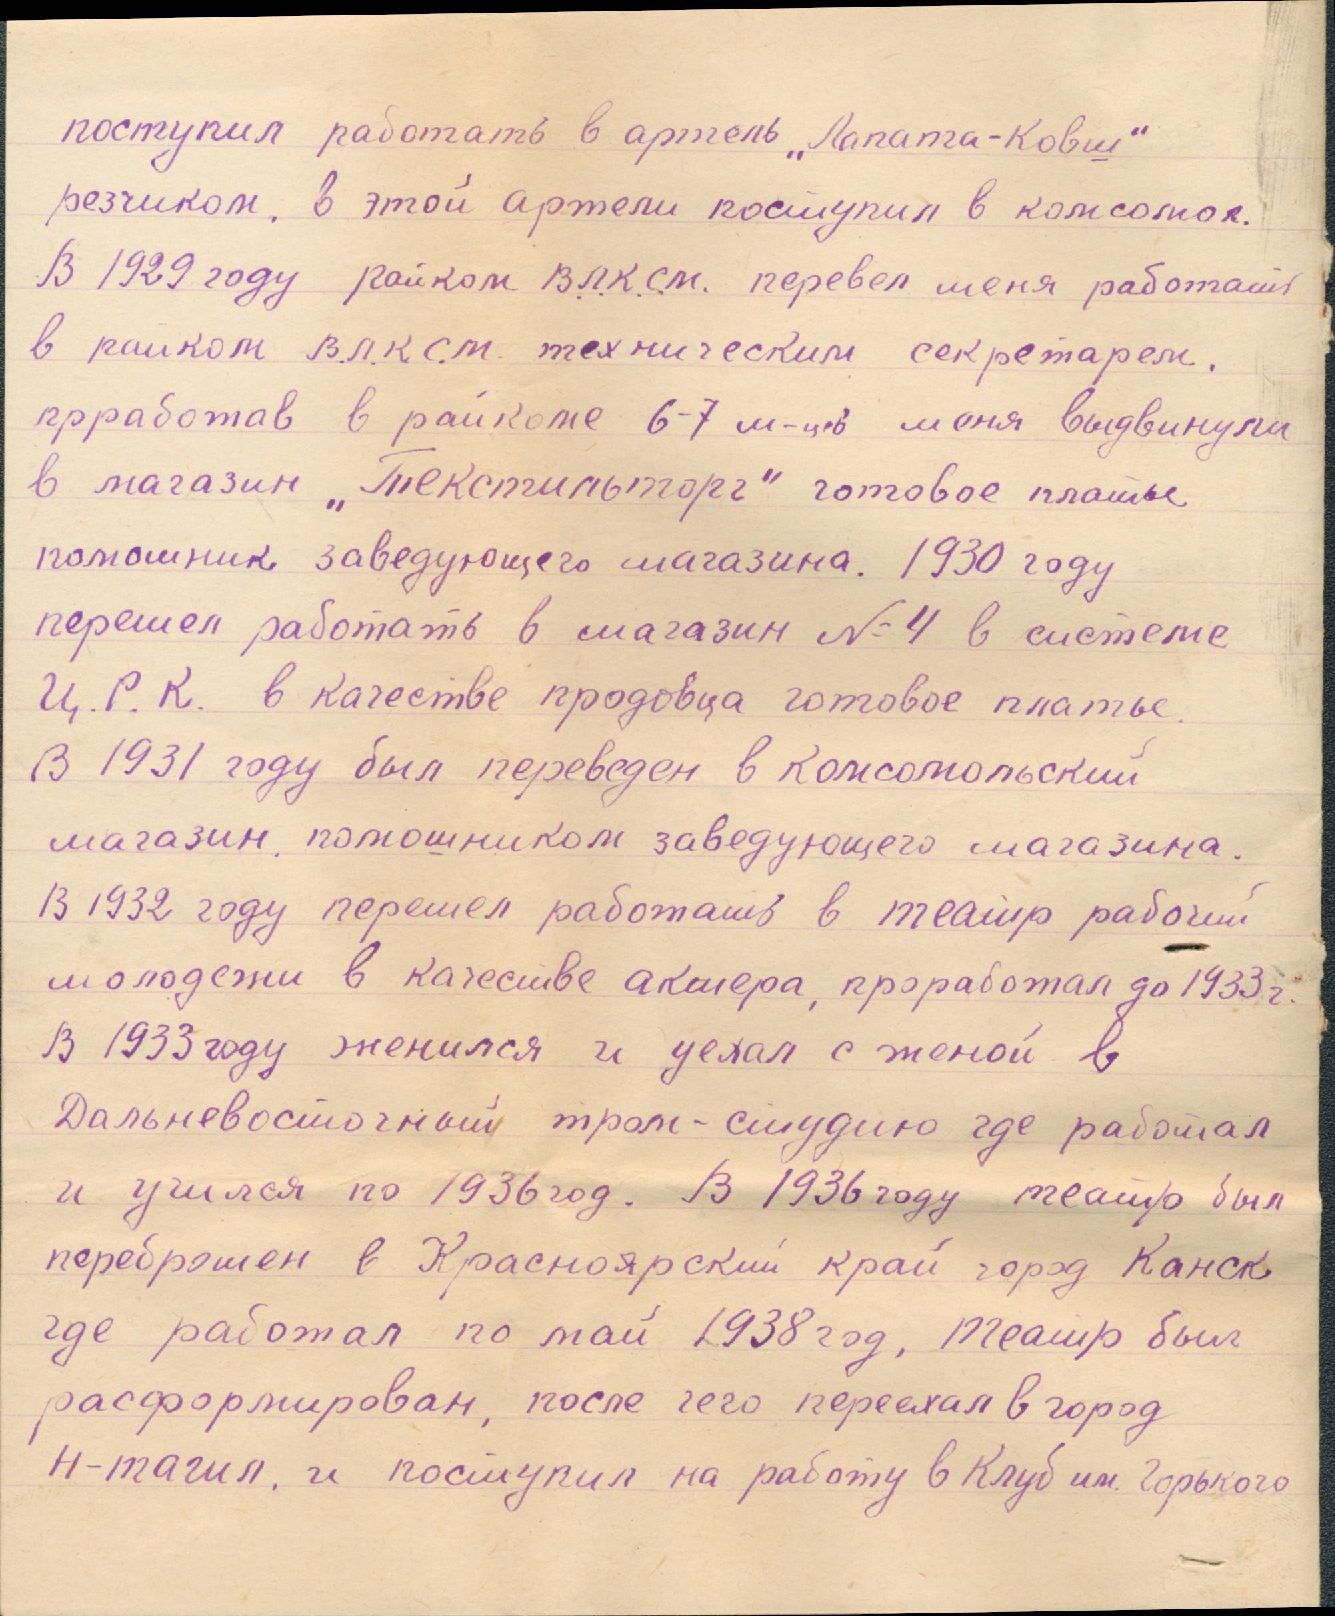 поступил работать в артель „Лапата-Ковш“
резчиком. в этой артели поступил в комсомол.
В 1929 году райком В.Л.К.С.М. перевел меня работать
в райком В.Л.К.С.М. техническим секретарем.
прработав в райкоме 6-7 м-цев меня выдвинули
в магазин „Текстильторг“ готовое платье
помошник заведующего магазина. 1930 году
перешел работать в магазин № 4 в системе
Ц.Р.К. в качестве продовца готовое платье.
В 1931 году был переведен в Комсомольский
магазин. помошником заведующего магазина.
В 1932 году перешел работать в театр рабочий
молодежи в качестве актера, проработал до 1933 г.
В 1933 году женился и уехал с женой в
Дальневосточный тром-студию где работал
и учился по 1936 год. В 1936 году театр был
переброшен в Красноярский край город Канск
где работал по май 1938 год, театр был
расформирован, после чего переехал в город
Н-тагил. и поступил на работу в Клуб им. Горького